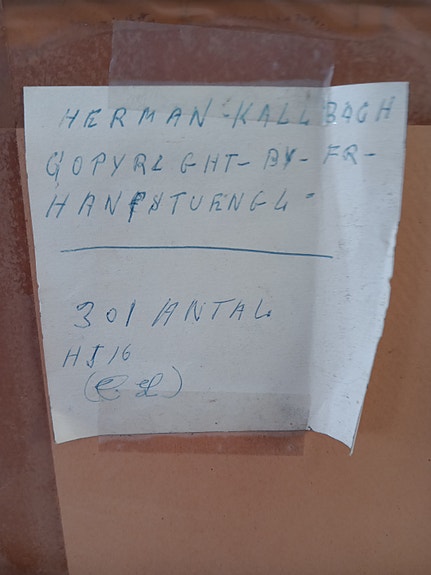 HERMAN-KALLBAGH
GOPYRIGHT-BY-FR-
HANFSTUENGL-
301 ANTAL
HJ16